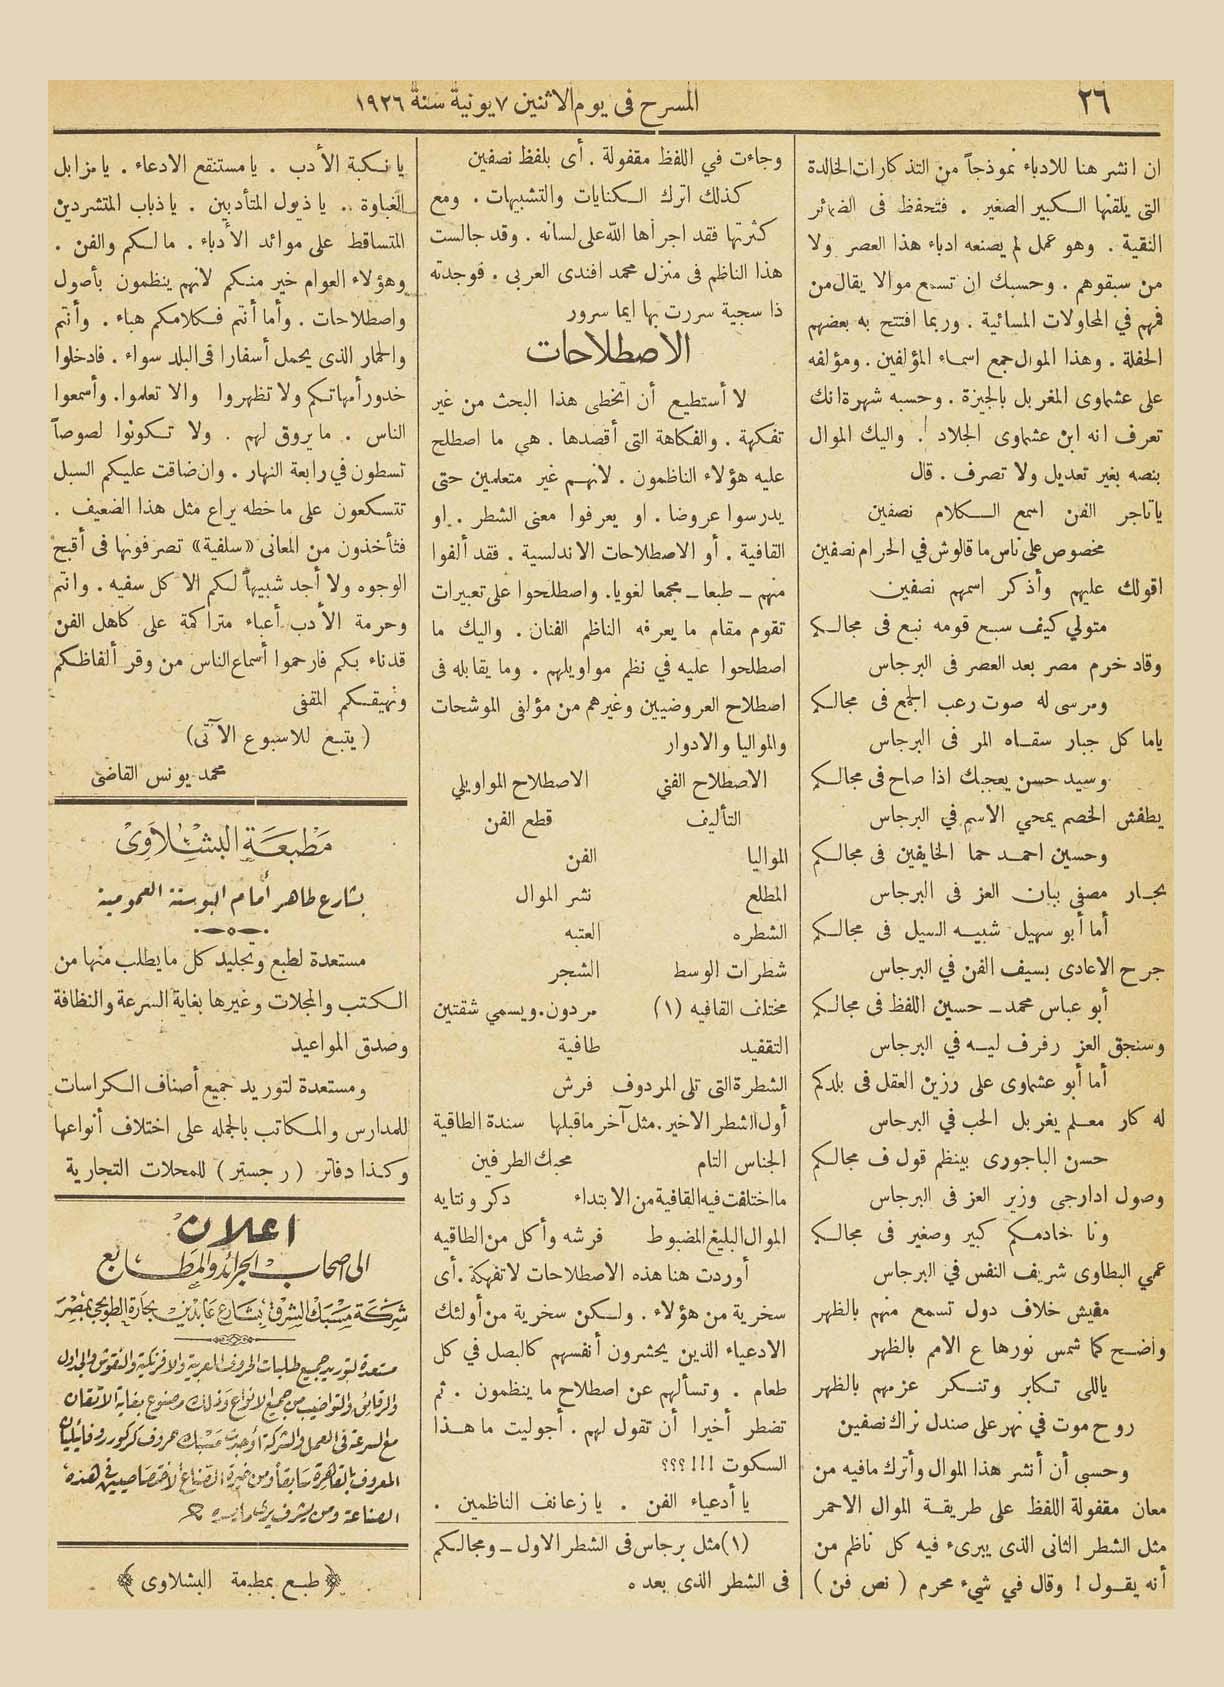 ٢٦
المسرح فى يوم الاثنين ٧ يونية سنة ١٩٢٦
ان انشر هنا للادباء نموذجاً من التذكارات الخالدة
التى يلقنها الكبير الصغير . فتحفظ فى الضمائر
النقية . وهو عمل لم يصنعه ادباء هذا العصر ولا
من سبقوهم . وحسبك ان تسمع موالا يقال من
فمهم في المحاولات المسائية . وربما افتتح به بعضهم
الحفلة . وهذا الموال جمع اسماء المؤلفين . ومؤلفه
على عشماوى المغربل بالجيزة . وحسبه شهرة انك
تعرف انه ابن عشماوى الجلاد ! . واليك الموال
بنصه بغير تعديل ولا تصرف . قال
ياتاجر الفن اسمع الكلام نصفين
مخصوص على ناس ماقالوش في الحرام نصفين
اقولك عليهم وأذكر اسمهم نصفين
متولي كيف سبع قومه نبع فى مجالكم
وقاد خرم مصر بعد العصر فى البرجاس
ومرسى له صوت رعب الجمع فى مجالكم
ياما كل جبار سقاه المر فى البرجاس
وسيد حسن يعجبك اذا صاح فى مجالكم
يطفش الخصم يمحي الاسم في البرجاس
وحسين احمد حما الخايفين فى مجالكم
بجار مصفى ببان العز فى البرجاس
أما أبو سهيل شبيه السيل فى مجالكم
جرح الاعادى بسيف الفن في البرجاس
أبو عباس محمد ـ حسين اللفظ فى مجالكم
وسنجق العز رفرف ليه في البرجاس
أما أبو عشماوى على رزين العقل فى بلدكم
له كار معلم يغربل الحب في البرجاس
حسن الباجورى بينظم قول ف مجالكم
وصول ادارجى وزير العز فى البرجاس
ونا خادمكم كبير وصغير فى مجالكم
عمي البطاوى شريف النفس في البرجاس
مفيش خلاف دول تسمع منهم بالظهر
واضح كما شمس نورها ع الامم بالظهر
ياللى تكابر وتنكر عزمهم بالظهر
روح موت في نهر على صندل نراك نصفين
وحسبى أن أنشر هذا الموال وأترك مافيه من
معان مقفولة اللفظ على طريقة الموال الاحمر
مثل الشطر الثانى الذى يبرىء فيه كل ناظم من
أنه يقول ! وقال في شيء محرم ( نص فن )
وجاءت في اللفظ مقفولة . أى بلفظ نصفين
كذلك اترك الكنايات والتشبيهات . ومع
كثرتها فقد اجراها الله على لسانه . وقد جالست
هذا الناظم فى منزل محمد افندى العربى . فوجدته
ذا سجية سررت بها ايما سرور
الاصطلاحات
لا أستطيع أن اتخطى هذا البحث من غير
تفكهة . والفكاهة التى أقصدها . هي ما اصطلح
عليه هؤلاء الناظمون . لانهم غير متعلمين حتى
يدرسوا عروضا . او يعرفوا معنى الشطر . او
القافية . أو الاصطلاحات الاندلسية . فقد ألفوا
منهم ـ طبعا ـ مجمعا لغويا . واصطلحوا على تعبيرات
تقوم مقام ما يعرفه الناظم الفنان . واليك ما
اصطلحوا عليه في نظم مواويلهم . وما يقابله فى
اصطلاح العروضيين وغيرهم من مؤلفى الموشحات
والمواليا والادوار
الاصطلاح الفني الاصطلاح المواويلي
التأليف قطع الفن
المواليا الفن
المطلع نشر الموال
الشطره العتبه
شطرات الوسط الشجر
مختلف القافيه (١) مردون . ويسمي شقتين
التقفيد طافية
الشطرة التى تلى المردوف فرش
أول الشطر الاخير . مثل آخر ماقبلها سندة الطاقية
الجناس التام محبك الطرفين
مااختلفت فيه القافية من الابتداء دكر ونتايه
الموال البليغ المضبوط فرشه وأكل من الطاقيه
أوردت هنا هذه الاصطلاحات لاتفهكة . أى
سخرية من هؤلاء . ولكن سخرية من أولئك
الادعياء الذين يحشرون أنفسهم كالبصل في كل
طعام . وتسألهم عن اصطلاح ما ينظمون . ثم
تضطر أخيرا أن تقول لهم . أجوليت ما هذا
السكوت !!! ؟؟؟
يا أدعياء الفن . يا زعانف الناظمين .
(١) مثل برجاس فى الشطر الاول ـ ومجالكم
فى الشطر الذى بعده
يا نكبة الأدب . يا مستنقع الادعاء . يا مزابل
الغباوة . يا ذيول المتأدبين . يا ذباب المتشردين
المتساقط على موائد الأدباء . ما لكم والفن .
وهؤلاء العوام خير منكم لانهم ينظمون بأصول
واصطلاحات . وأما أنتم فكلامكم هباء . وأنتم
والحمار الذى يحمل أسفارا فى البلد سواء . فادخلوا
خدور أمهاتكم ولا تظهروا والا تعلموا . وأسمعوا
الناس . ما يروق لهم . ولا تكونوا لصوصاً
تسطون في رابعة النهار . وان ضاقت عليكم السبل
تتسكعون على ما خطه يراع مثل هذا الضعيف .
فتأخذون من المعانى «سلفية» تصرفونها فى أقبح
الوجوه ولا أجد شبيهاً لكم الا كل سفيه . وانتم
وحرمة الأدب أعباء متراكمة على كاهل الفن
قدناء بكم فارحموا أسماع الناس من وقر ألفاظكم
ونهيقكم المقفى
( يتبع للاسبوع الآتى)
محمد يونس القاضى
مطبعة البشلاوى
بشارع طاهر أمام البوستة العمومية
مستعدة لطبع وتجليد كل ما يطلب منها من
الكتب والمجلات وغيرها بغاية السرعة والنظافة
وصدق المواعيد
ومستعدة لتوريد جميع أصناف الكراسات
للمدارس والمكاتب بالجمله على اختلاف أنواعها
وكذا دفاتر ( رجستر ) للمحلات التجارية
اعلان
الى اصحاب الجرائد والمطابع
شركة مسبك الشرق بشارع عابدين بحارة الطوبجى بمصر
مستعدة لتوريد جميع طلبات الحروف العربية والافرنكية والنقوش والجداول
والرقائق والتواضيب من جميع الانواع وذلك مصنوع بغاية الاتقان
مع السرعة فى العمل والشركة أوجدت مسبك حروف كركور روفائيليان
المعروف بالقاهرة سابقا ومن خيرة الصناع الاختصاصيين في هذه
الصناعة ومن يشرف يرى ما يسره
﴿ طبع بمطبعة البشلاوى ﴾